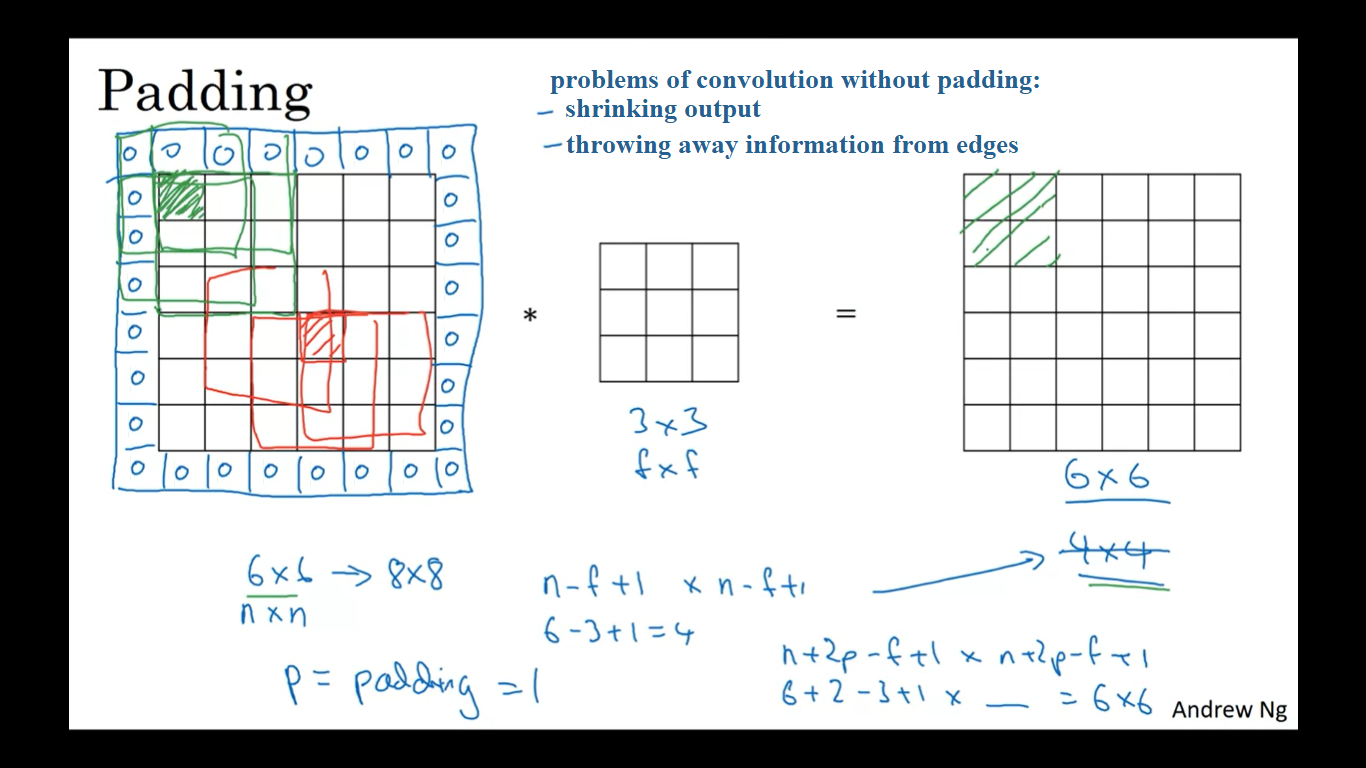 Padding
problems of convolution without padding:
– shrinking output
– throwing away information from edges
0 0 0 0 0 0 0 0
0 0
0 0
0 0
0 0
0 0
0 0
0 0 0 0 0 0 0 0
*
=
3 × 3
f × f
6 × 6
4 × 4
6 × 6 → 8 × 8
n × n
n - f + 1 × n - f + 1
6 - 3 + 1 = 4
p = padding = 1
n + 2p - f + 1 × n + 2p - f + 1
6 + 2 - 3 + 1 × __ = 6 × 6
Andrew Ng